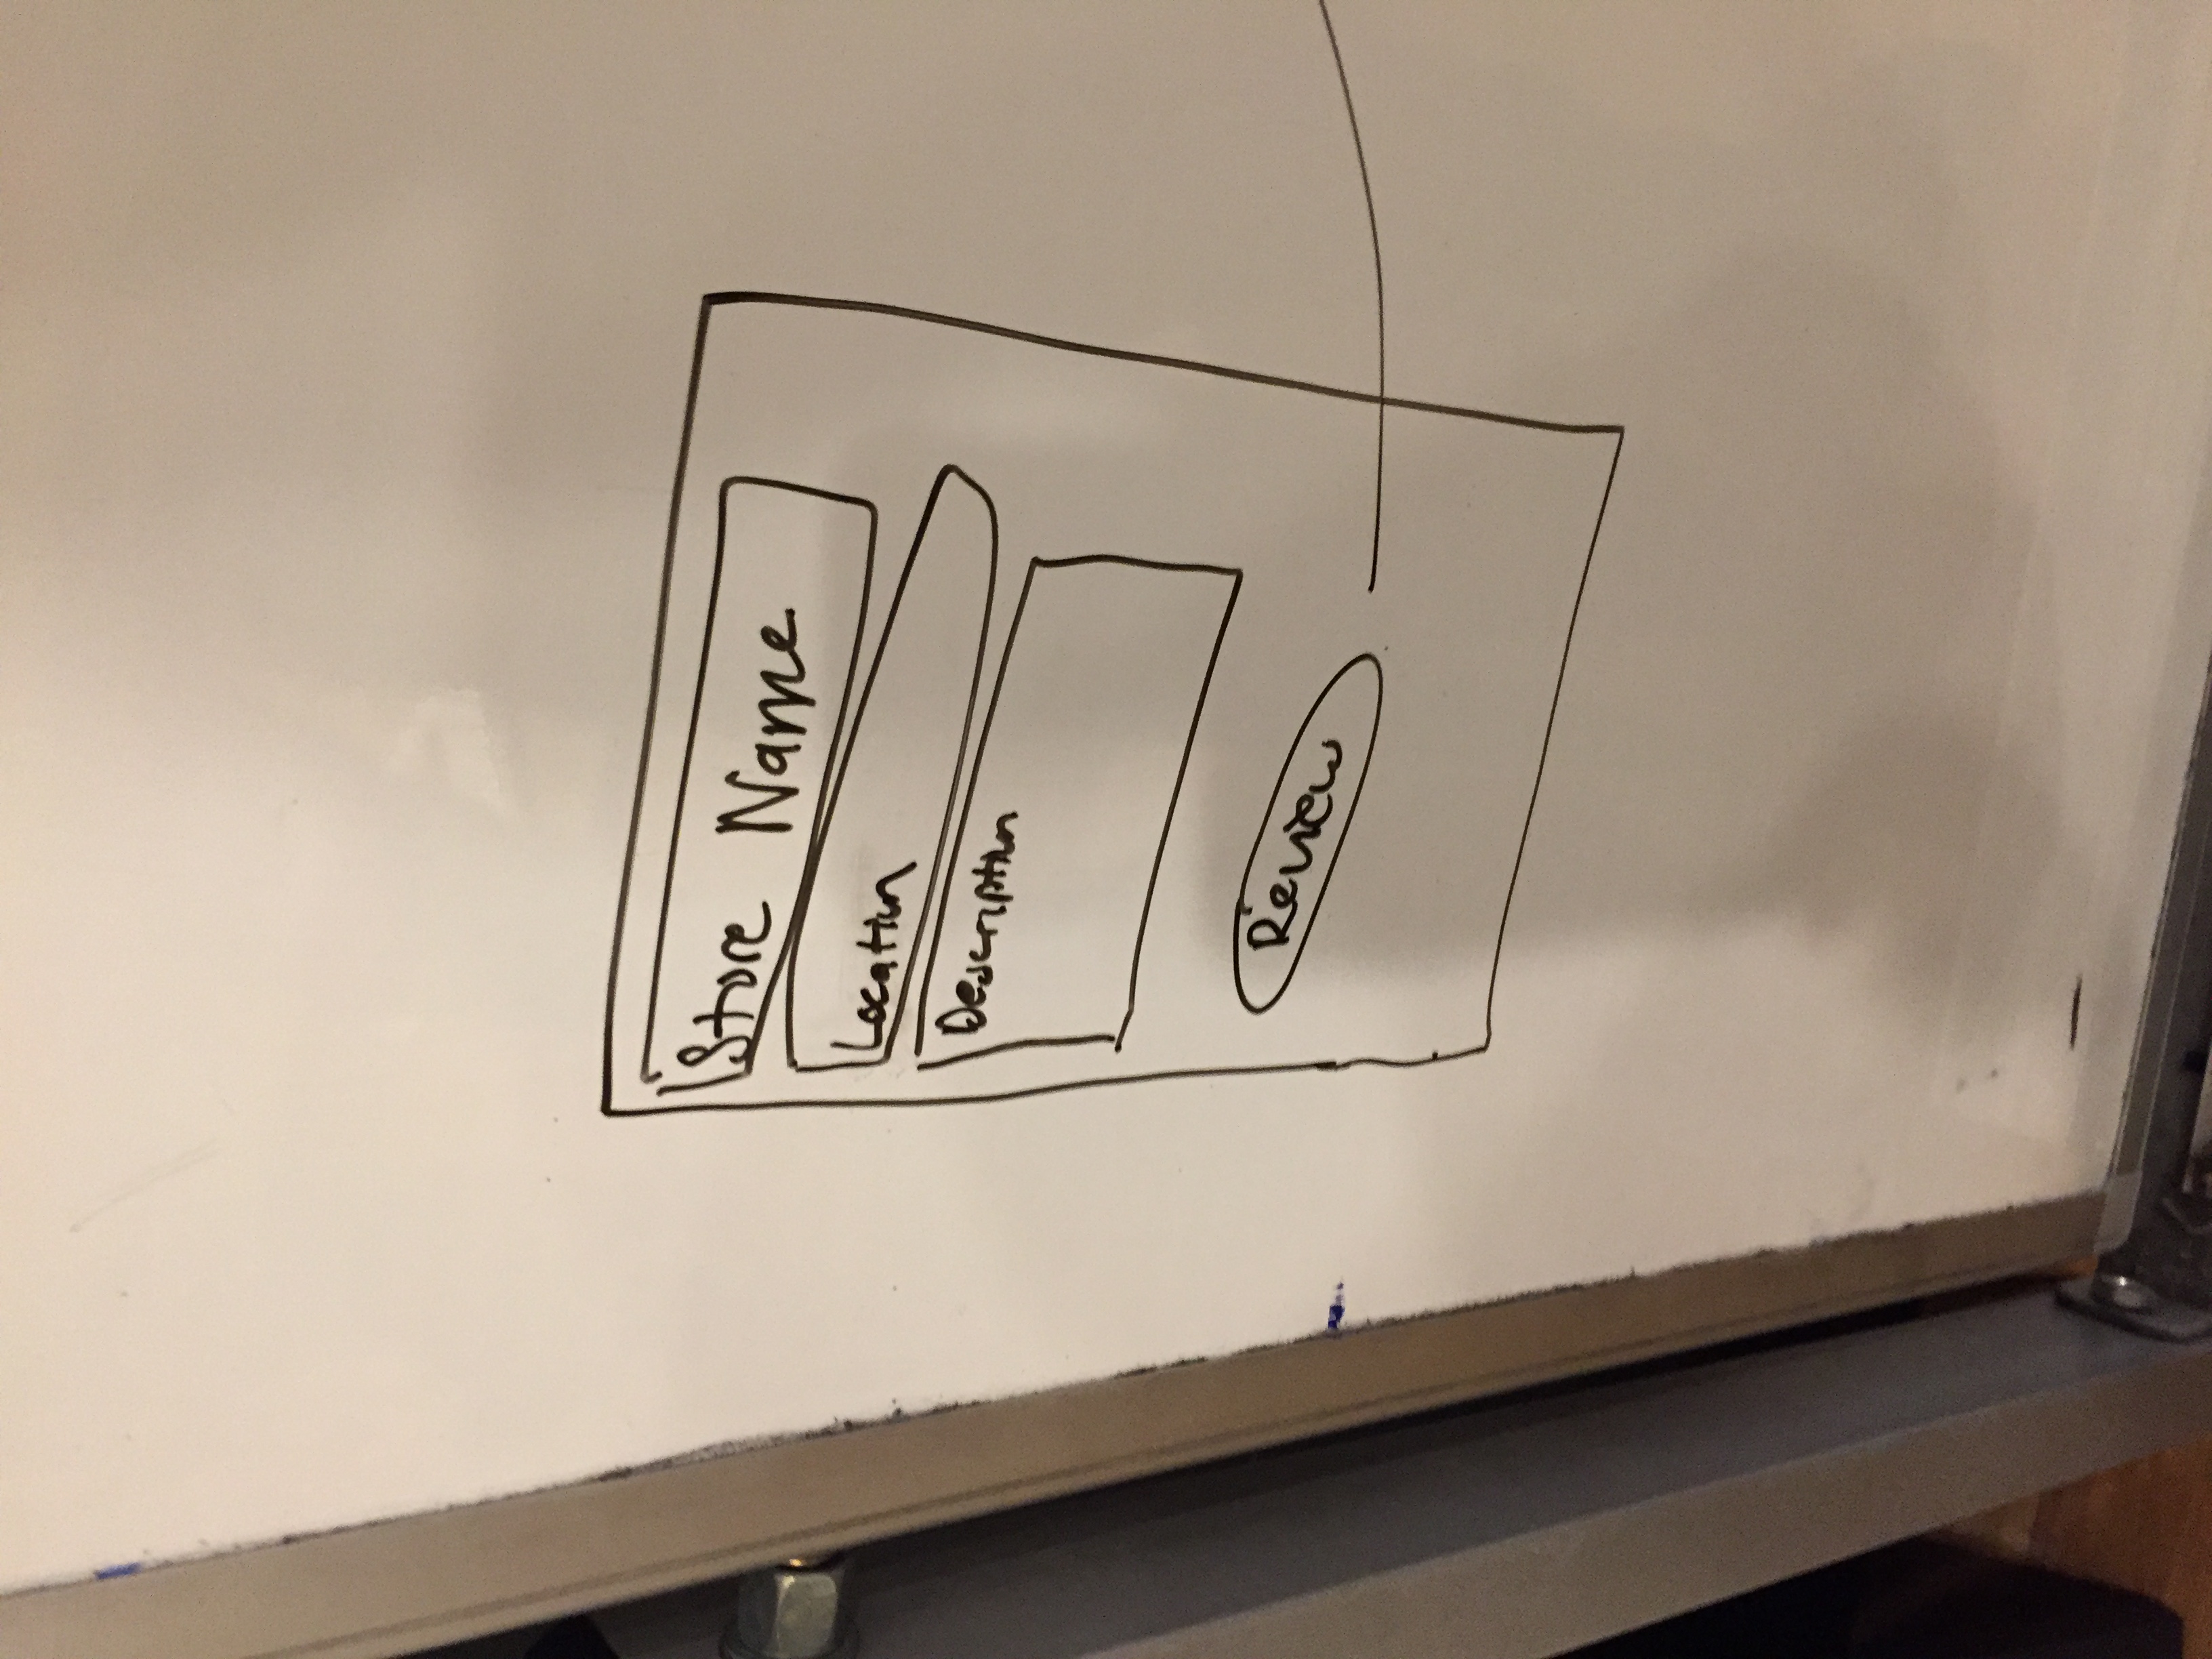 Store Name
Location
Description
Review